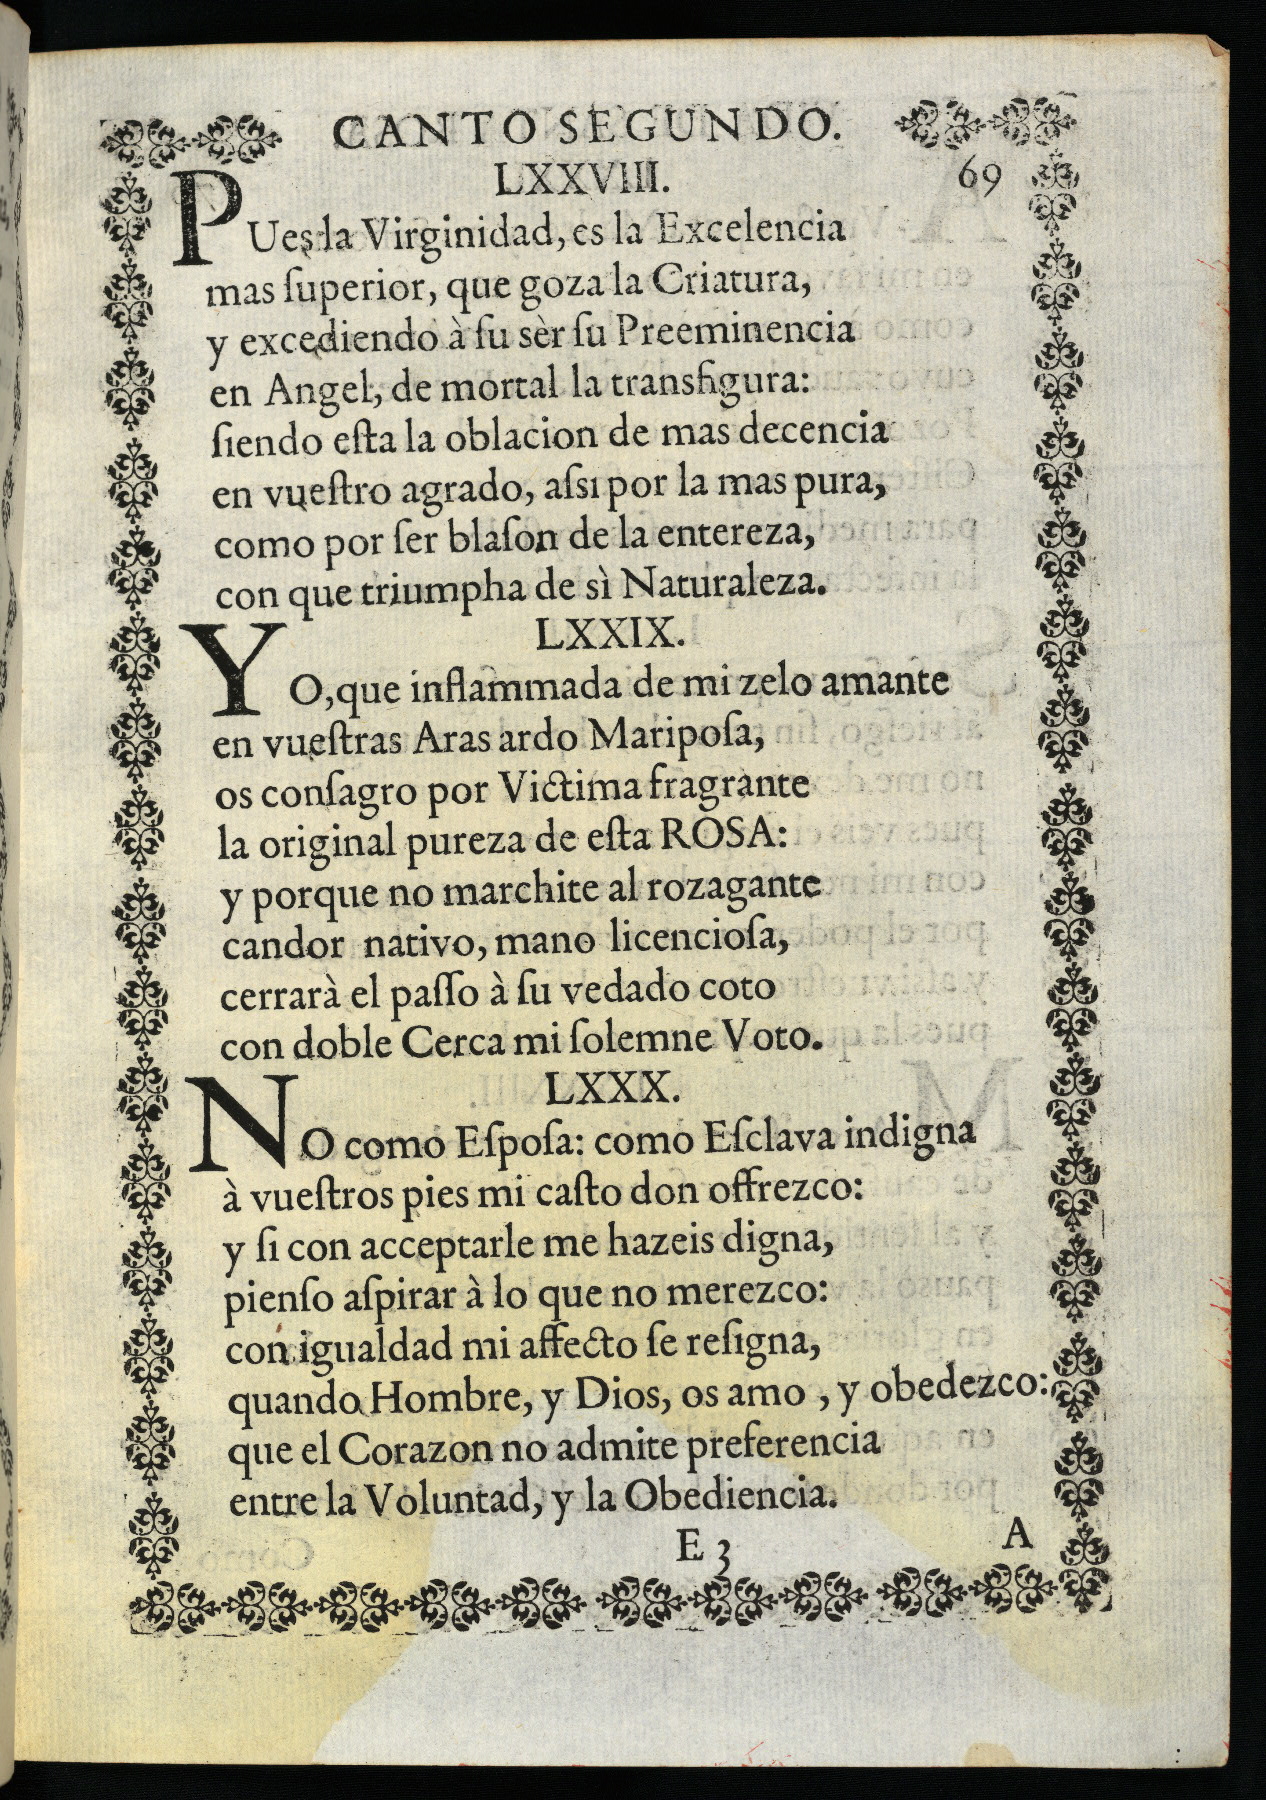 CANTO SEGUNDO.
LXXVIIII.
69
PUes la Virginidad, es la Excelencia
mas ſuperior, que goza la Criatura,
y excediendo à ſu sèr ſu Preeminencia
en Angel, de mortal la transfigura:
ſiendo eſta la oblacion de mas decencia
en vueſtro agrado, aſsi por la mas pura,
como por ſer blaſon de la entereza,
con que triumpha de sì Naturaleza.
LXXIX.
YO, que inflammada de mi zelo amante
en vueſtras Aras ardo Maripoſa,
os conſagro por Victima fragrante
la original pureza de eſta ROSA:
y porque no marchite al rozagante
candor nativo, mano licencioſa,
cerrarà el paſſo à ſu vedado coto
con doble Cerca mi ſolemne Voto.
LXXX.
NO como Eſpoſa: como Eſclava indigna
à vueſtros pies mi caſto don offrezco:
y ſi con acceptarle me hazeis digna,
pienſo aſpirar à lo que no merezco:
con igualdad mi affecto ſe reſigna,
quando Hombre, y Dios, os amo, y obedezco:
que el Corazon no admite preferencia
entre la Voluntad, y la Obediencia.
E 3
A